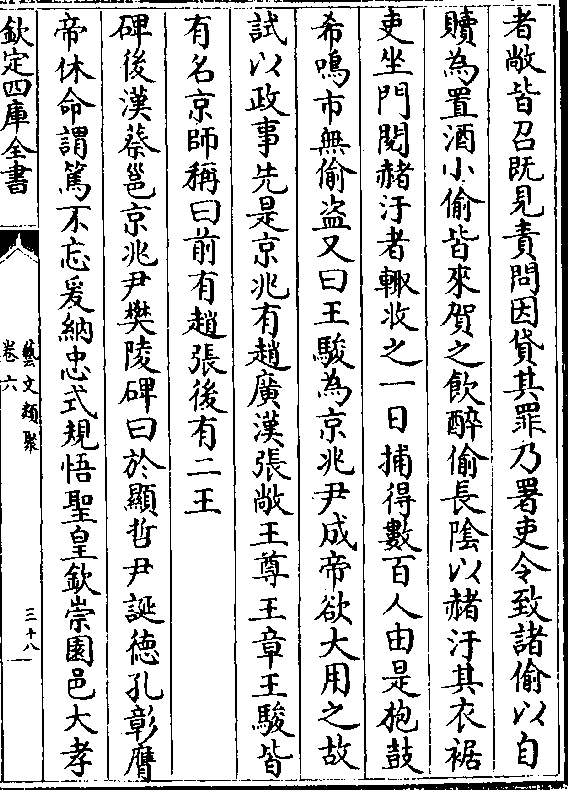 者敞皆召既見責問因貸其罪乃署吏令致諸偷以自
贖為置酒小偷皆來賀之飲醉偷長陰以赭汙其衣裾
吏坐門閱赭汙者輙收之一日捕得數百人由是枹鼓
希鳴市無偷盗又曰王駿為京兆尹成帝欲大用之故
試以政事先是京兆有趙廣漢張敞王尊王章王駿皆
有名京師稱曰前有趙張後有二王
碑後漢蔡邕京兆尹樊陵碑曰於顯哲尹誕德孔彰膺
帝休命謂篤不忘爰納忠式規悟聖皇欽崇園邑大孝
欽定四庫全書
藝文類聚
卷六
三十八